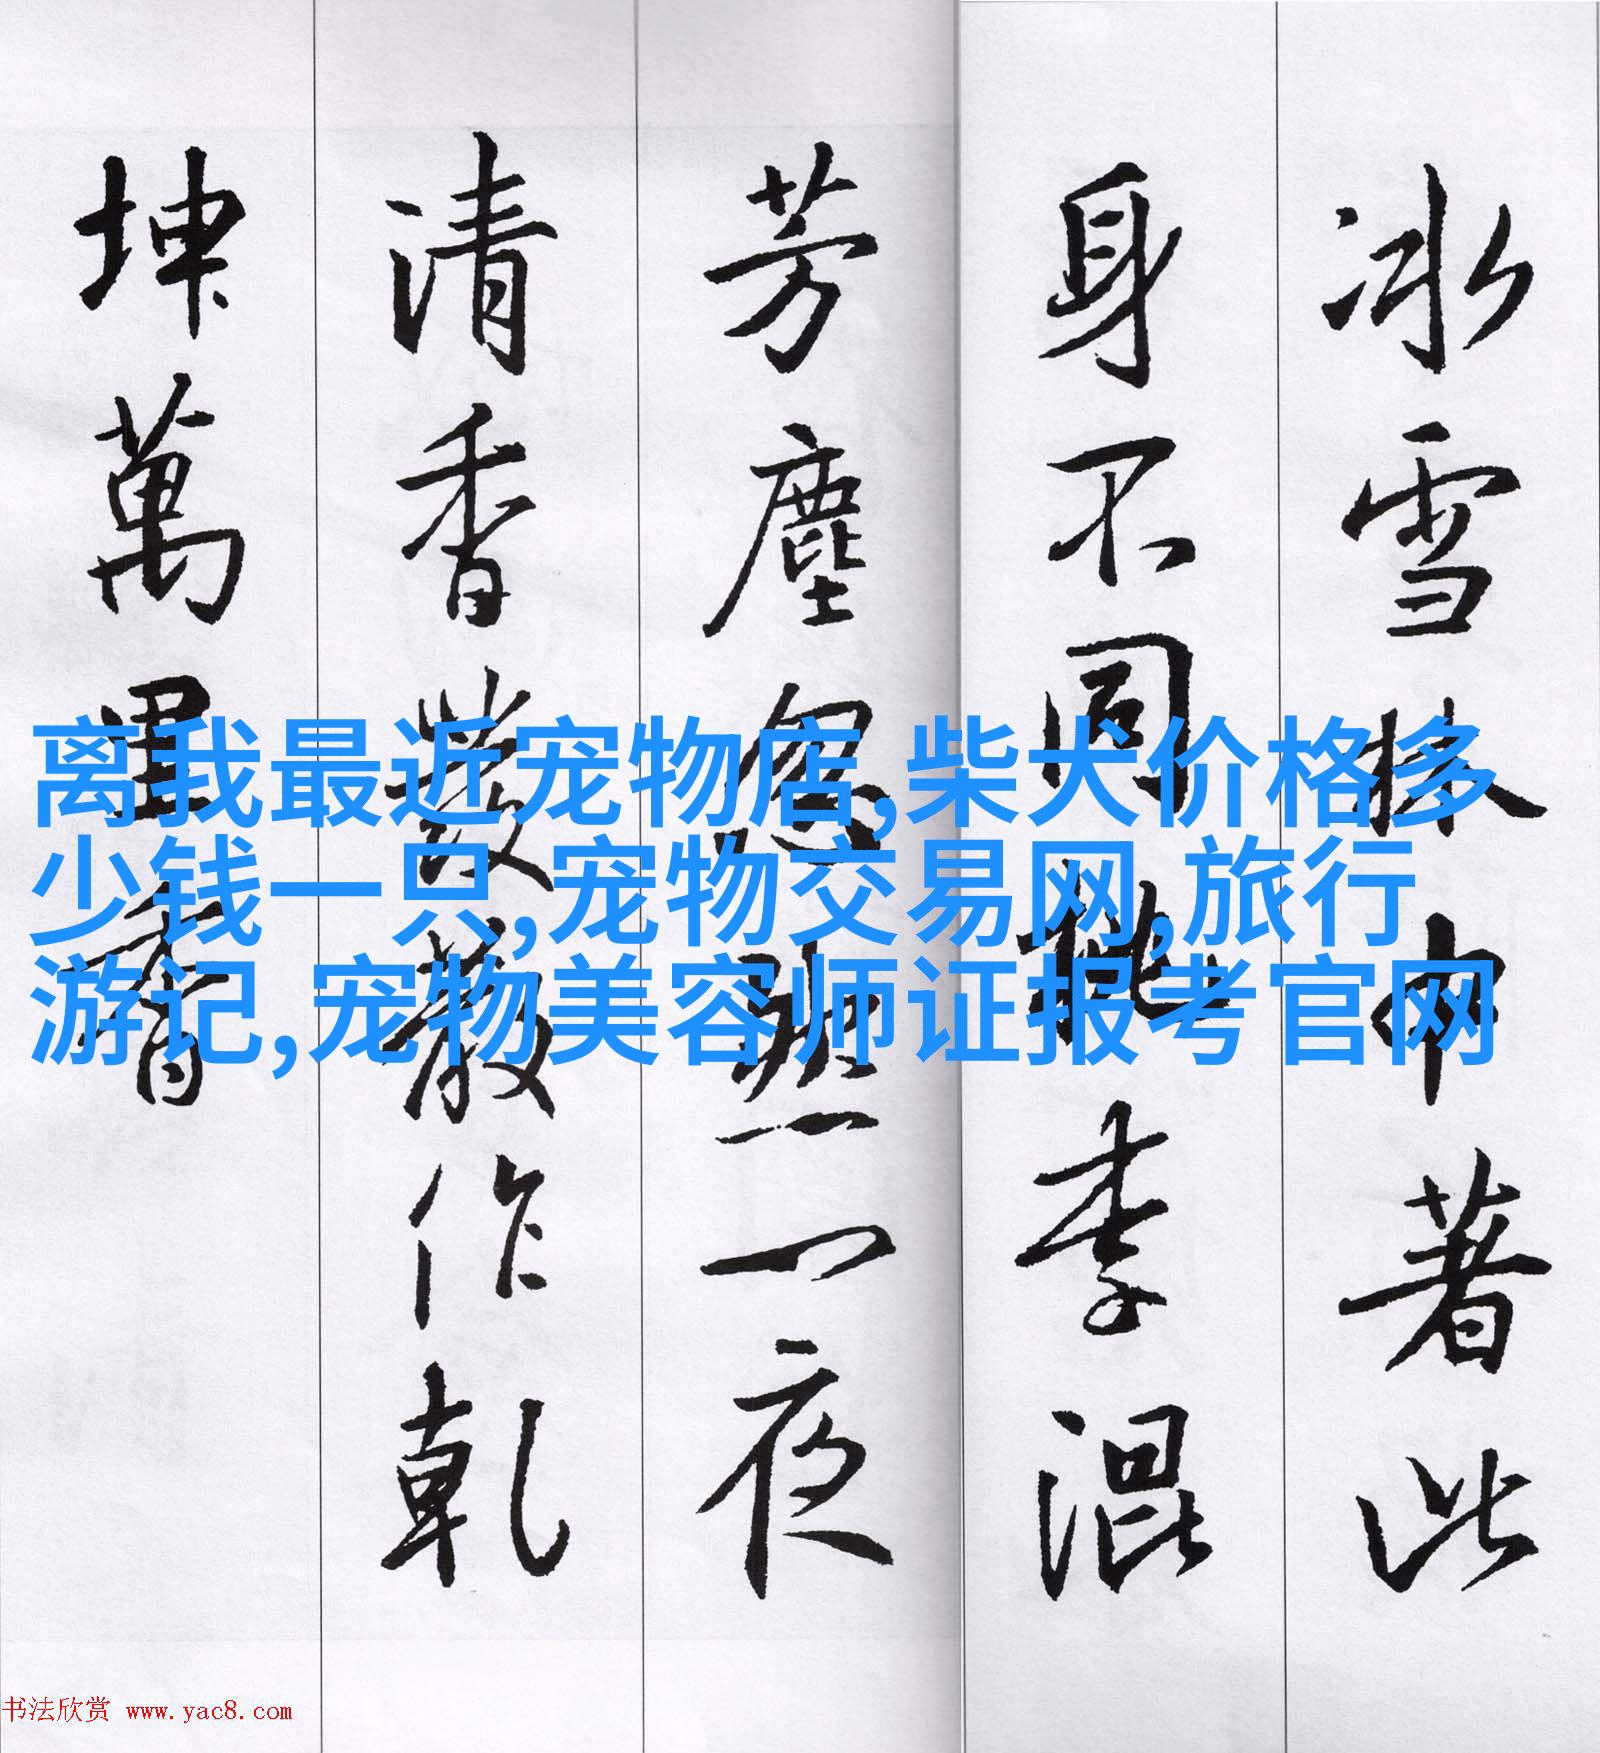 冰雪林中著此
身不同桃李混
芳塵忽然一夜
清香發散作乾
坤萬里香
离我最近宠物店,柴犬价格多
少钱一只,宠物交易网,旅行
游记,宠物美容师证报考官网
书法欣赏 www.yac8.com